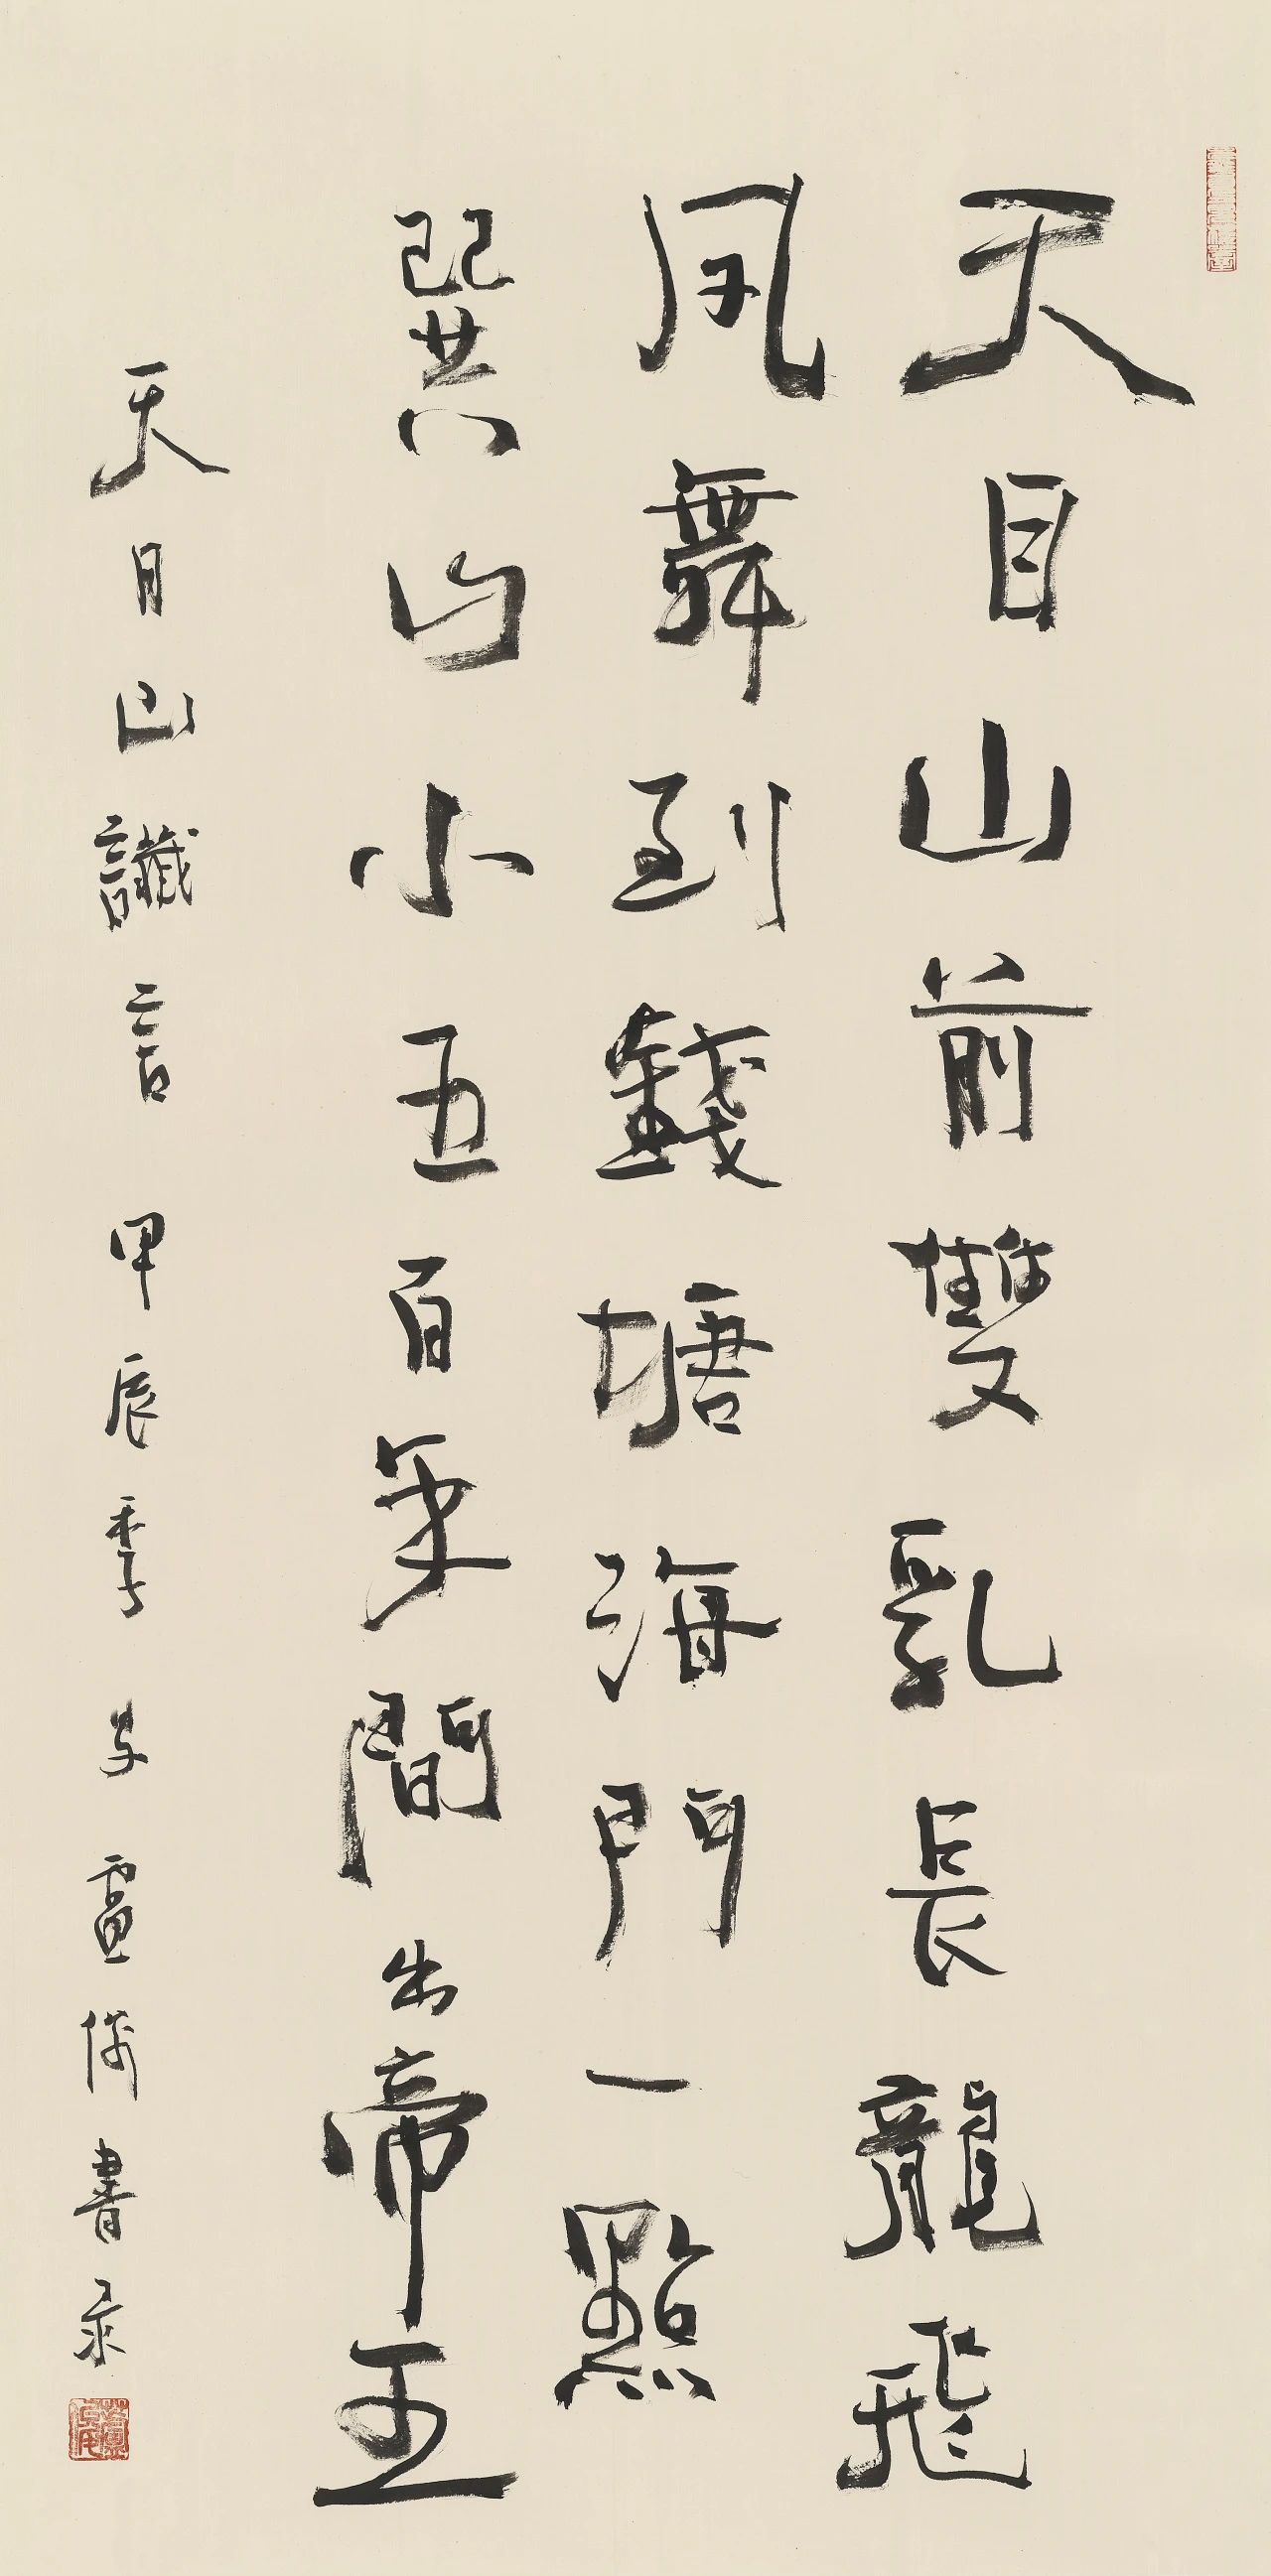 天目山前雙乳長龍飛
鳳舞到錢塘海門一點
巽山小五百年間出帝王
天目山讖言 甲辰季 盧 書录